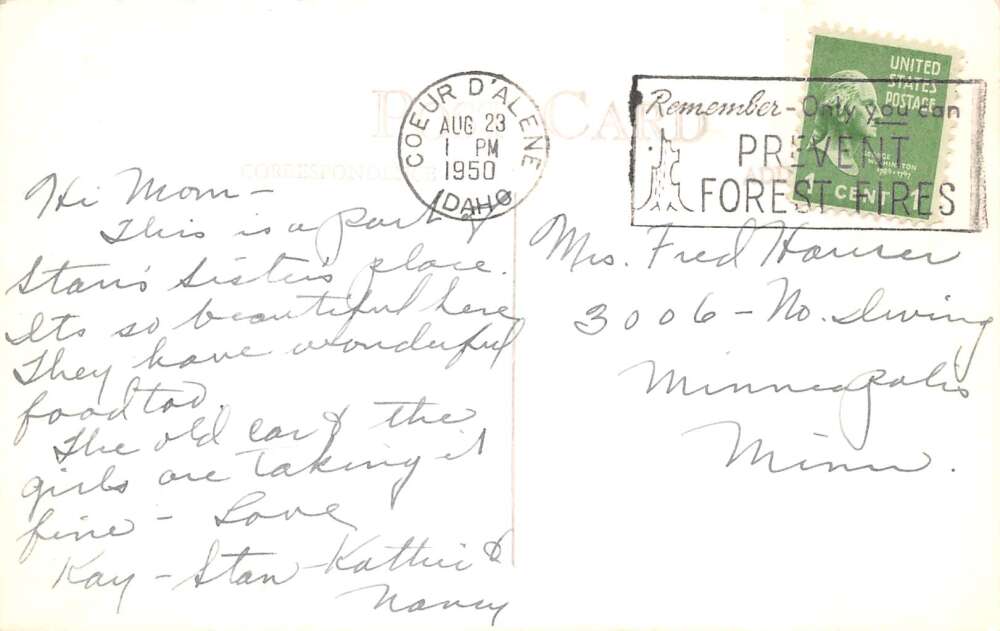 POST CARD
CORRESPONDENCE
COEUR D'ALENE
AUG 23
1 PM
1950
IDAHO
Remember - Only you can
PREVENT
FOREST FIRES
UNITED
STATES
POSTAGE
GEORGE
WASHINGTON
1789-1797
1 CENT 1
Hi Mom -
This is a part of
Stan's sister's place.
Its so beautiful here
They have wonderful
food too.
The old car & the
girls are taking it
fine - Love
Kay - Stan - Kathie &
Nancy
Mrs. Fred Hauser
3006 - No. Irving
Minneapolis
Minn.